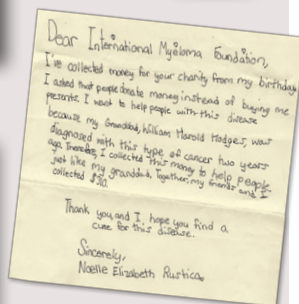 Dear International Myeloma Foundation,
I've collected money for your charity from my birthday.
I asked that people donate money instead of buying me
presents. I want to help people with this disease
because my Granddad, William Harold Hodges, was
diagnosed with this type of cancer two years
ago. Therefore, I collected this money to help people
just like my granddad. Together, my friends and I
collected
Thank you, and I hope you find a
cure for this disease.
Sincerely,
Noelle Elizabeth Rustica